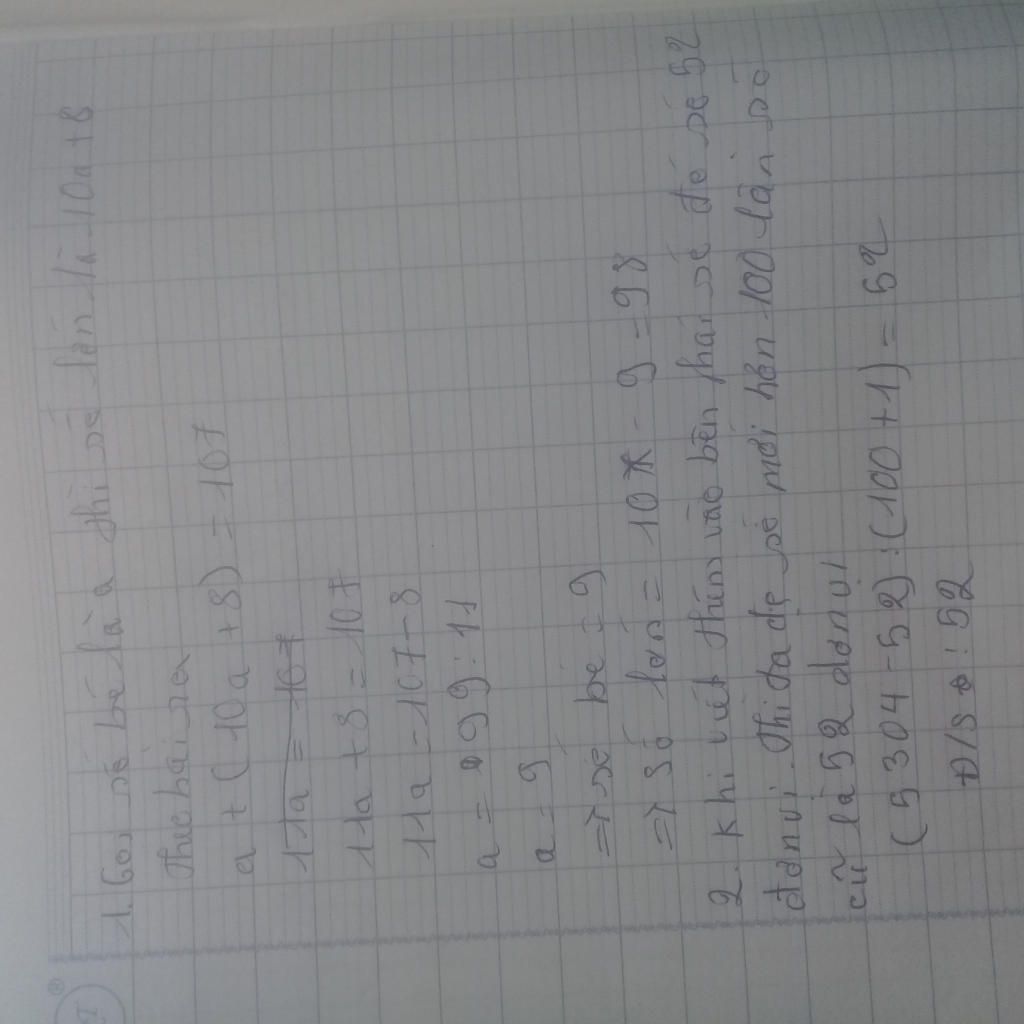 1. Gọi số bé là a thì số lớn là 10a + 8
Theo bài ra
a + (10a + 8) = 107
11a = 107
11a + 8 = 107
11a = 107 - 8
a = 99 : 11
a = 9
=> số bé = 9
=> số lớn = 107 - 9 = 98
2. Khi viết thêm vào bên phải số đó số 52
đơn vị. Thì ta đc số mới hơn 100 lần số
cũ là 52 đơn vị
(5304 - 52) : (100 + 1) = 52
Đ/S : 52